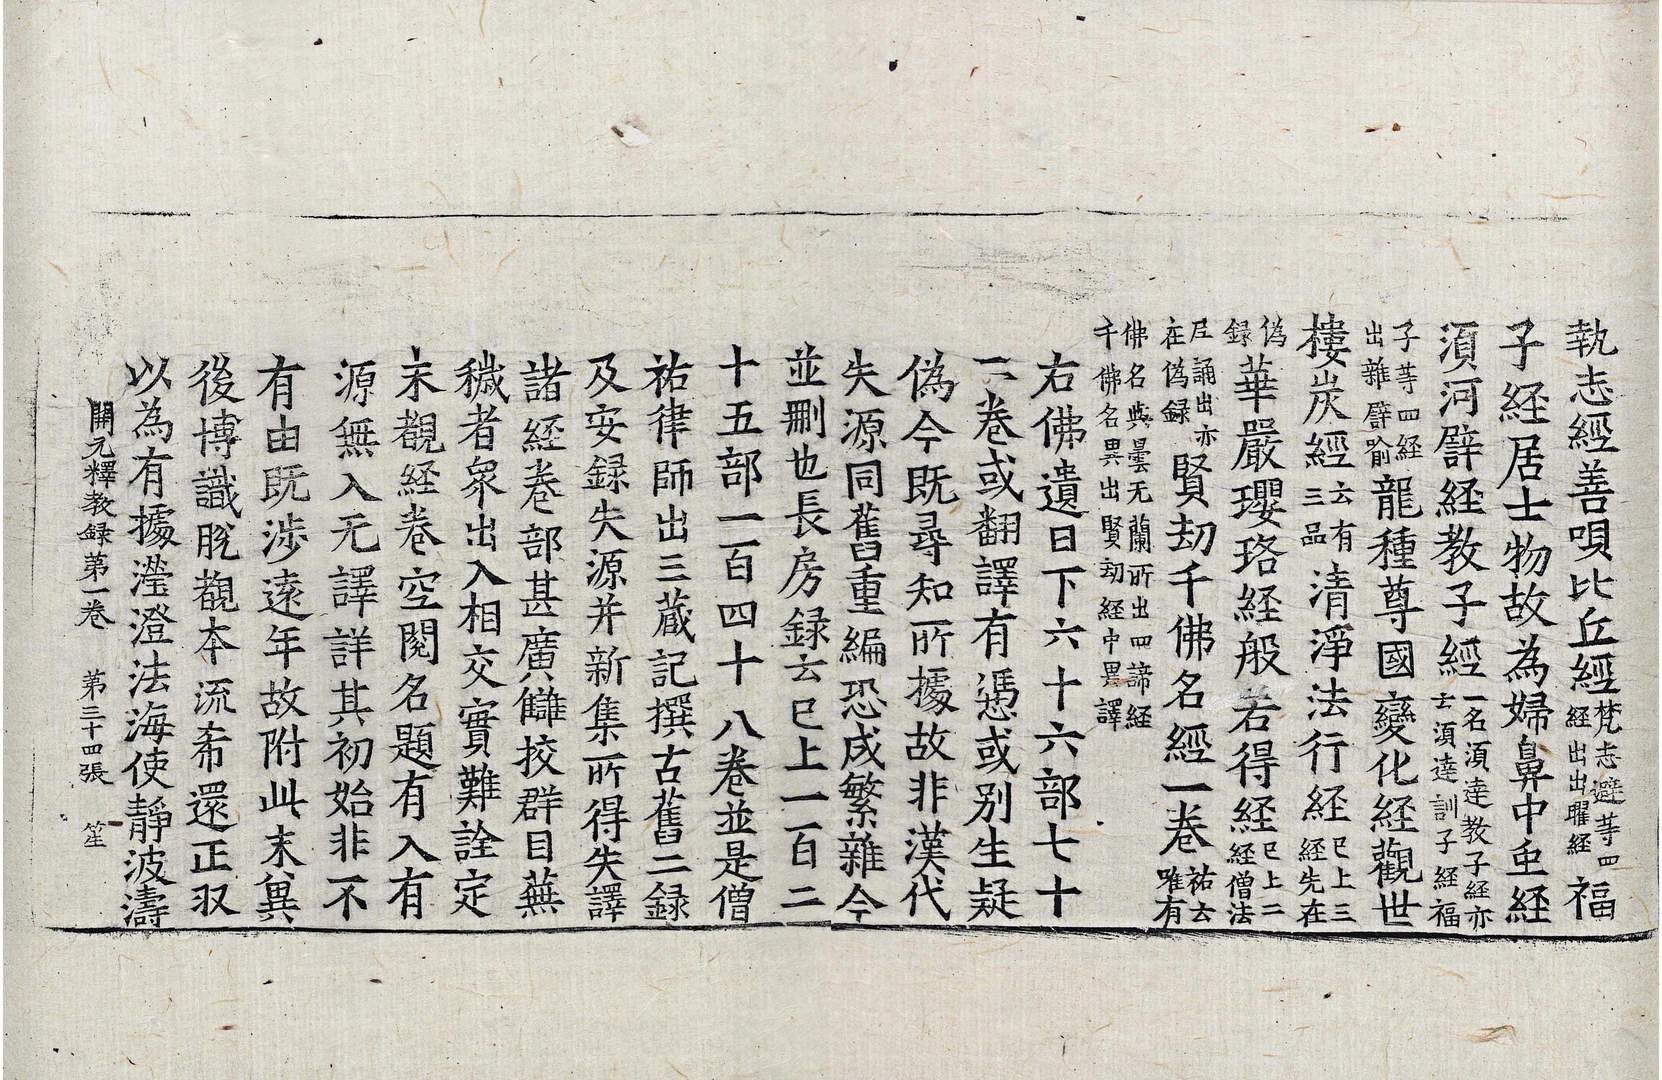 執志經善唄比丘經梵志避等四經出出曜經福
子経居士物故為婦鼻中虫経
湏河譬経教子經一名湏達教子経亦云湏達訓子経福
子等四経出雜譬喻龍種尊國變化経觀世
樓炭経云有三品清淨法行経巳上三経先在
偽録華嚴瓔珞経般若得経巳上二経僧法
尼誦出亦在偽録賢劫千佛名經一卷祐云唯有
佛名與曇无蘭所出四諦経千佛名異出賢劫経中異譯
右佛遺日下六十六部七十
一卷或翻譯有慿或別生疑
偽今既尋知所據故非漢代
失源同舊重編恐成繁雜今
並刪也長房録云巳上一百二
十五部一百四十八卷並是僧
祐律師出三藏記撰古舊二録
及安録失源并新集所得失譯
諸経卷部甚廣讎挍群目蕪
穢者衆出入相交實難詮定
未覩経卷空閱名題有入有
源無入无譯詳其初始非不
有由既涉遠年故附此末兾
後博識脫覩本流希還正収
以為有據瀅澄法海使靜波濤
開元釋教録第一卷 第三十四張 笙